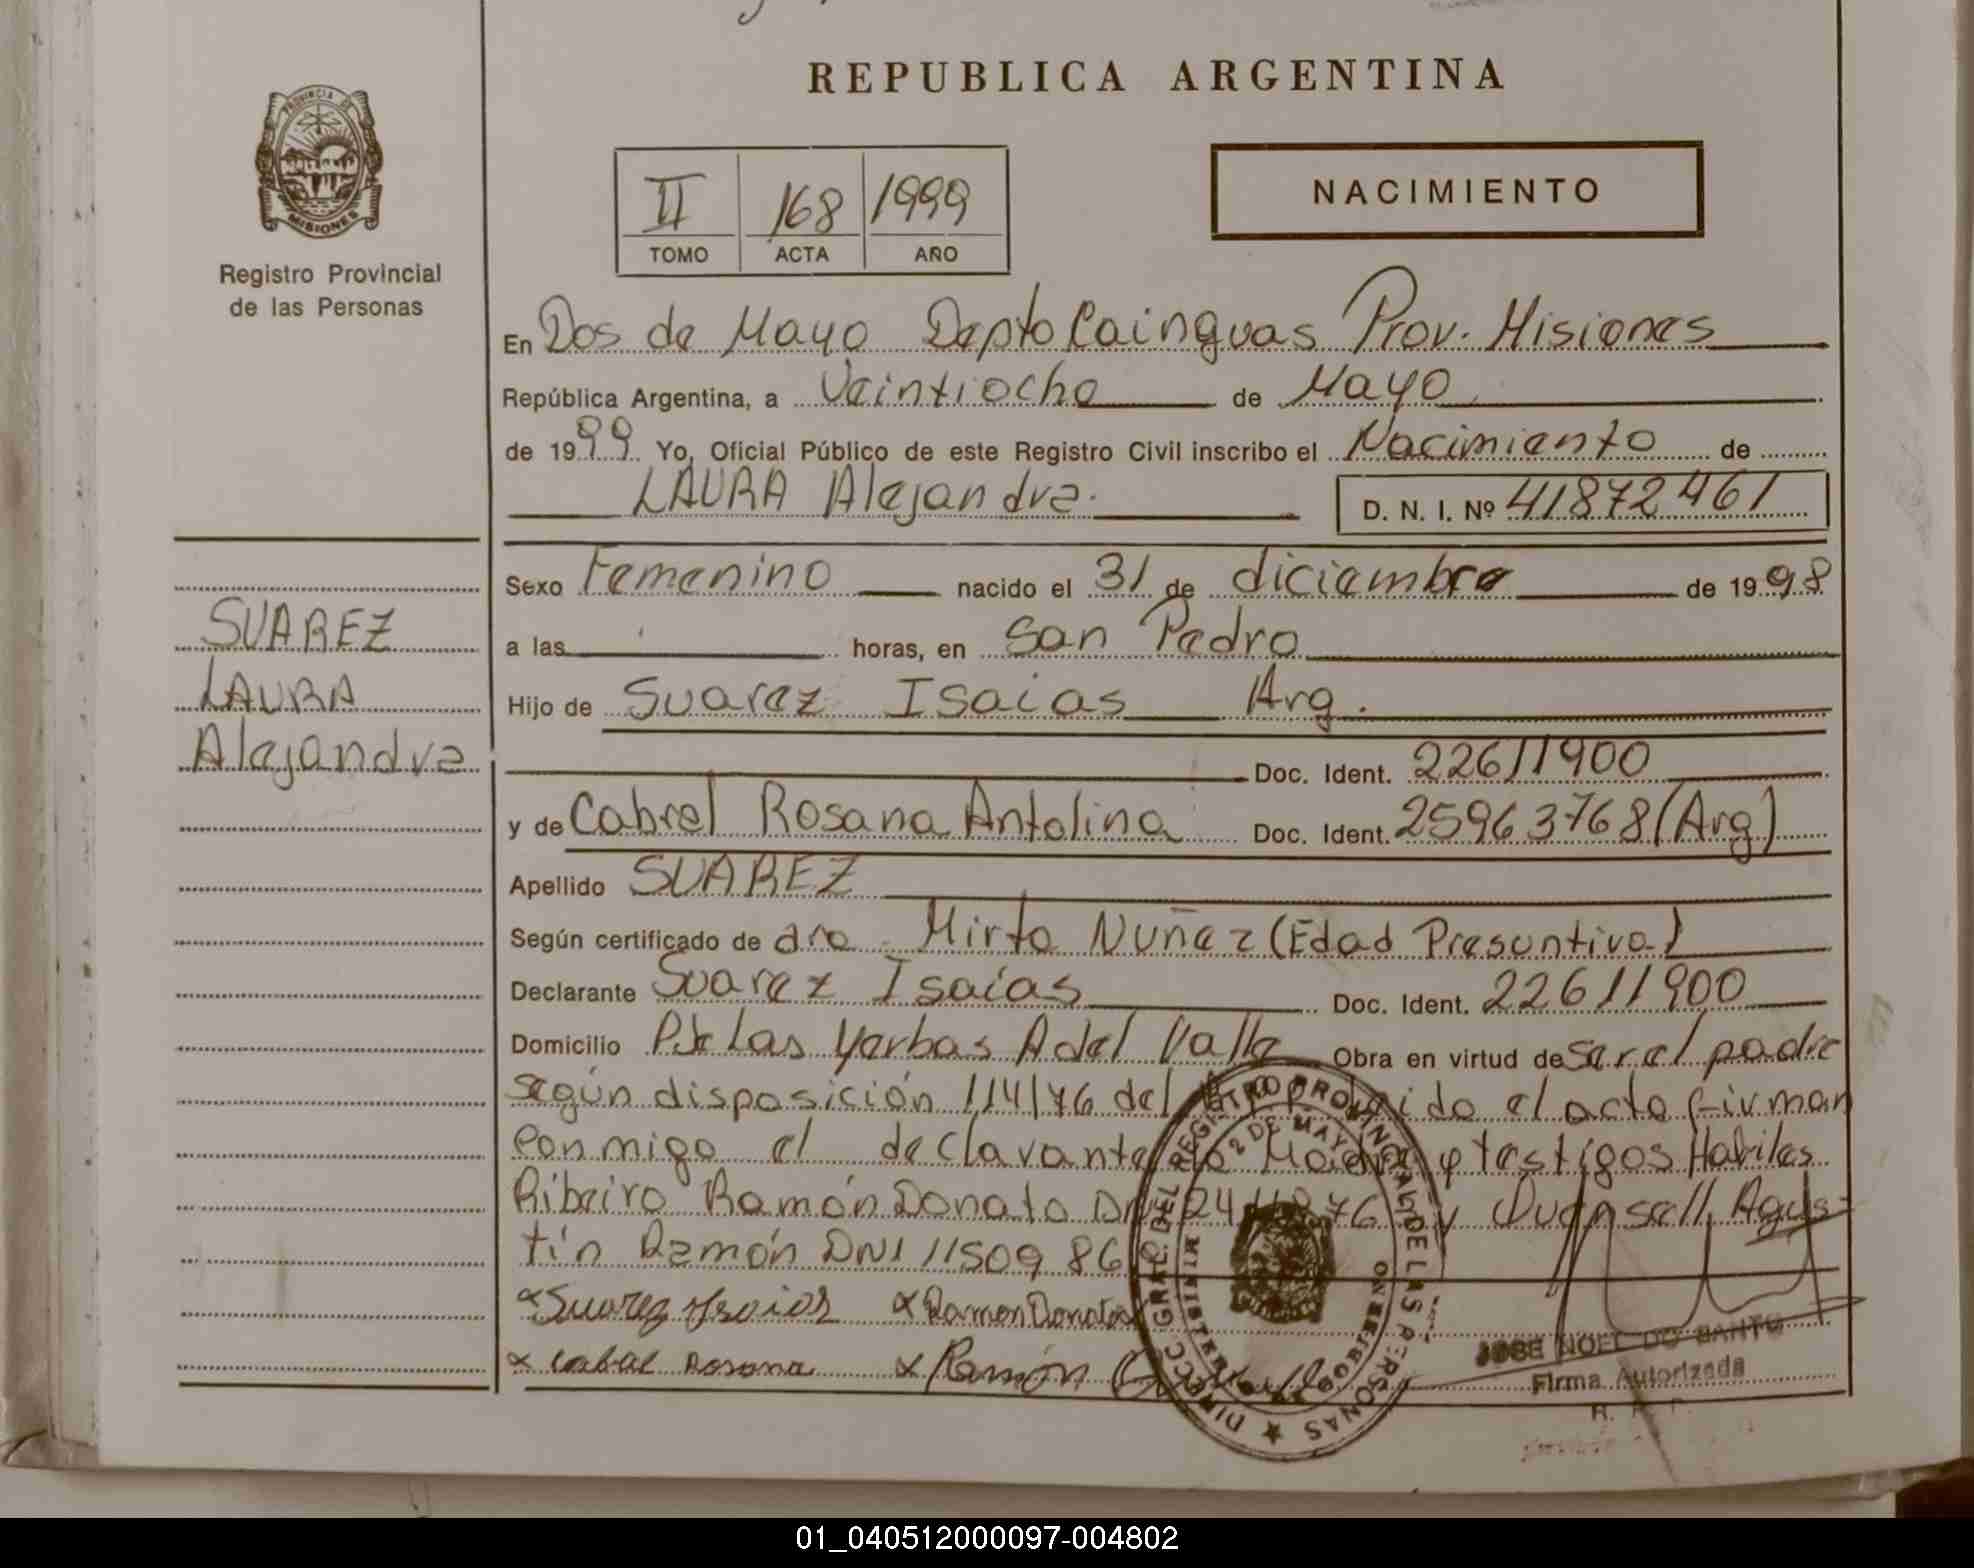 REPUBLICA ARGENTINA
PROVINCIA DE
MISIONES
Registro Provincial
de las Personas
II 168 1999
TOMO ACTA AÑO
NACIMIENTO
En Dos de Mayo Depto Cainguas Prov. Misiones
República Argentina, a Veintiocho de Mayo
de 1999 Yo, Oficial Público de este Registro Civil inscribo el Nacimiento de
LAURA Alejandra. D. N. I. Nº 41872461
Sexo Femenino nacido el 31 de diciembre de 1998
a las horas, en San Pedro
Hijo de Suarez Isaias Arg.
Doc. Ident. 22611900
y de Cabrel Rosana Antolina Doc. Ident. 25963768 (Arg)
Apellido SUAREZ
Según certificado de dra Mirta Nuñez (Edad Presuntiva)
Declarante Suarez Isaías Doc. Ident. 22611900
Domicilio Pje Las Yerbas A del Valle Obra en virtud de ser el padre
según disposición 114/76 del el acto firman
conmigo el declarante la Madre y testigos Habiles
Ribeiro Ramón Donato DNI y Duenscll, Agus-
tín Ramón DNI 11509 86
Suarez Isaias Ramon Donato
cabral Rosana Ramón
SUAREZ
LAURA
Alejandra
DIRECC. GRAL. DEL REGISTRO PROVINCIAL DE LAS PERSONAS
2 DE MAYO
MINISTERIO GOBIERNO
JOSE NOEL DO SANTO
Firma Autorizada
R. P. P.
01_040512000097-004802